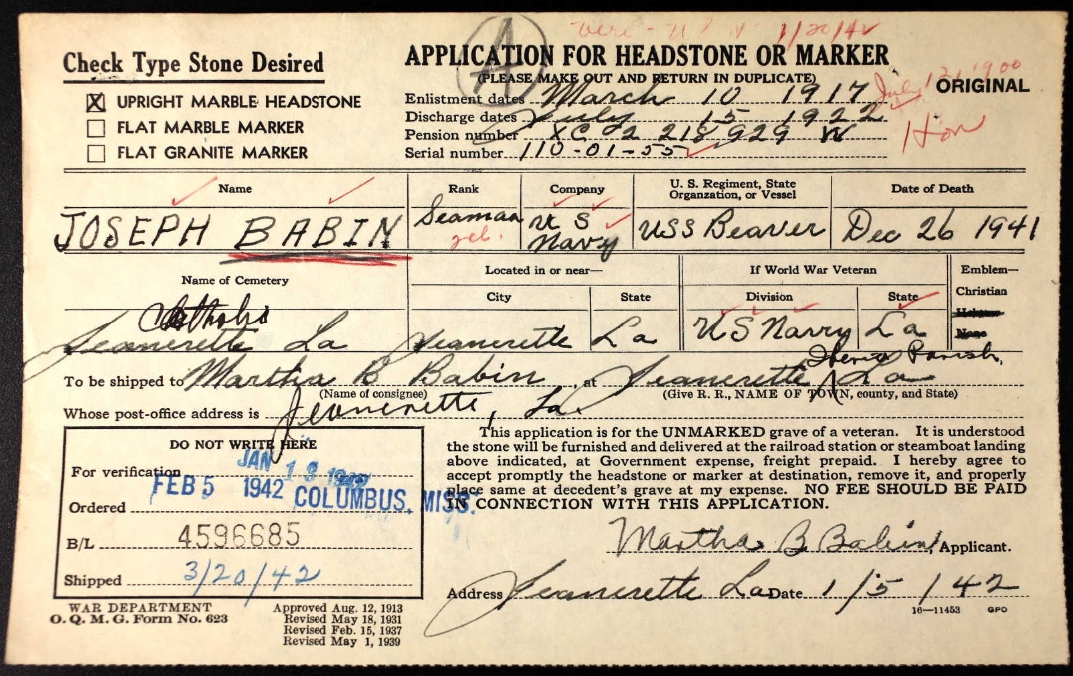 Ver. - U S N 1/20/42
A
Check Type Stone Desired
APPLICATION FOR HEADSTONE OR MARKER
(PLEASE MAKE OUT AND RETURN IN DUPLICATE)
ORIGINAL
☒ UPRIGHT MARBLE HEADSTONE
☐ FLAT MARBLE MARKER
☐ FLAT GRANITE MARKER
Enlistment dates March 10 1917 July 13, 1900
Discharge dates July 15 1922
Pension number XC 2 218 929 W Hon
Serial number 110-01-55
Name Rank Company U. S. Regiment, State Organzation, or Vessel Date of Death
JOSEPH BABIN Seaman 2cl. U S Navy USS Beaver Dec 26 1941
Name of Cemetery
Located in or near—
City State
If World War Veteran
Division State
Emblem—
Christian
Hebrew
None
Catholic
Jeanerette La Jeanerette La US Navy La
To be shipped to Martha B Babin at Jeanerette Iberia Parish, La
(Name of consignee) (Give R. R., NAME OF TOWN, county, and State)
Whose post-office address is Jeanerette, La.
DO NOT WRITE HERE
For verification JAN 1942
FEB 5 1942 COLUMBUS, MISS.
Ordered
B/L 4596685
Shipped 3/20/42
This application is for the UNMARKED grave of a veteran. It is understood
the stone will be furnished and delivered at the railroad station or steamboat landing
above indicated, at Government expense, freight prepaid. I hereby agree to
accept promptly the headstone or marker at destination, remove it, and properly
place same at decedent's grave at my expense. NO FEE SHOULD BE PAID
IN CONNECTION WITH THIS APPLICATION.
Martha B Babin, Applicant.
Address Jeanerette La Date 1/5/42
WAR DEPARTMENT
O. Q. M. G. Form No. 623
Approved Aug. 12, 1913
Revised May 18, 1931
Revised Feb. 15, 1937
Revised May 1, 1939
16—11453 GPO